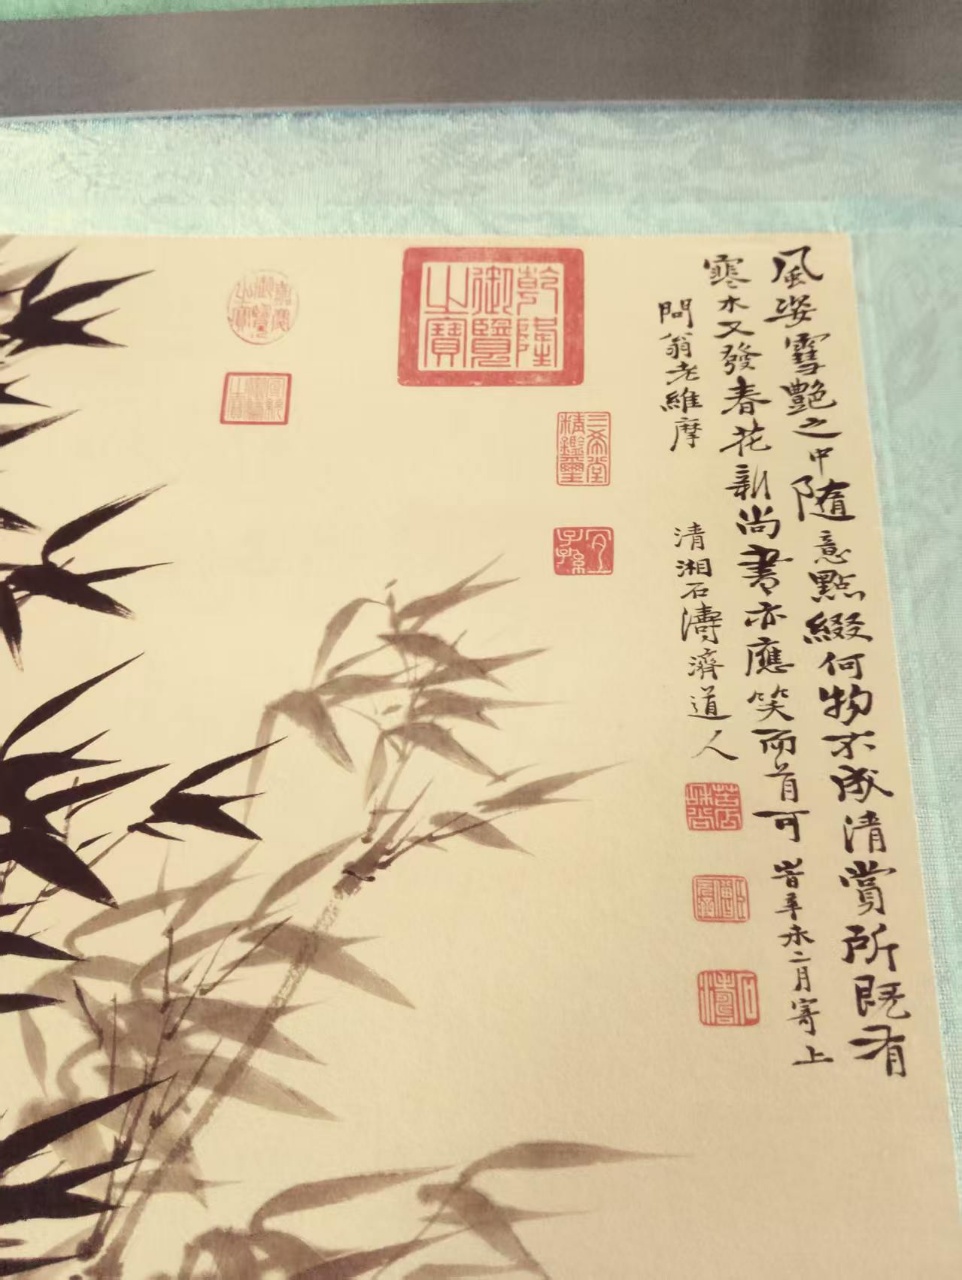 風姿雪艷之中随意點綴何物不成清賞所既有
寒木又發春花新尚書亦應笑而首可 昔辛未二月寄上
問翁老維摩 清湘石濤濟道人
乾隆御覽之寶
三希堂精鑑璽
宜子孫
嘉慶御覽之寶
石濤